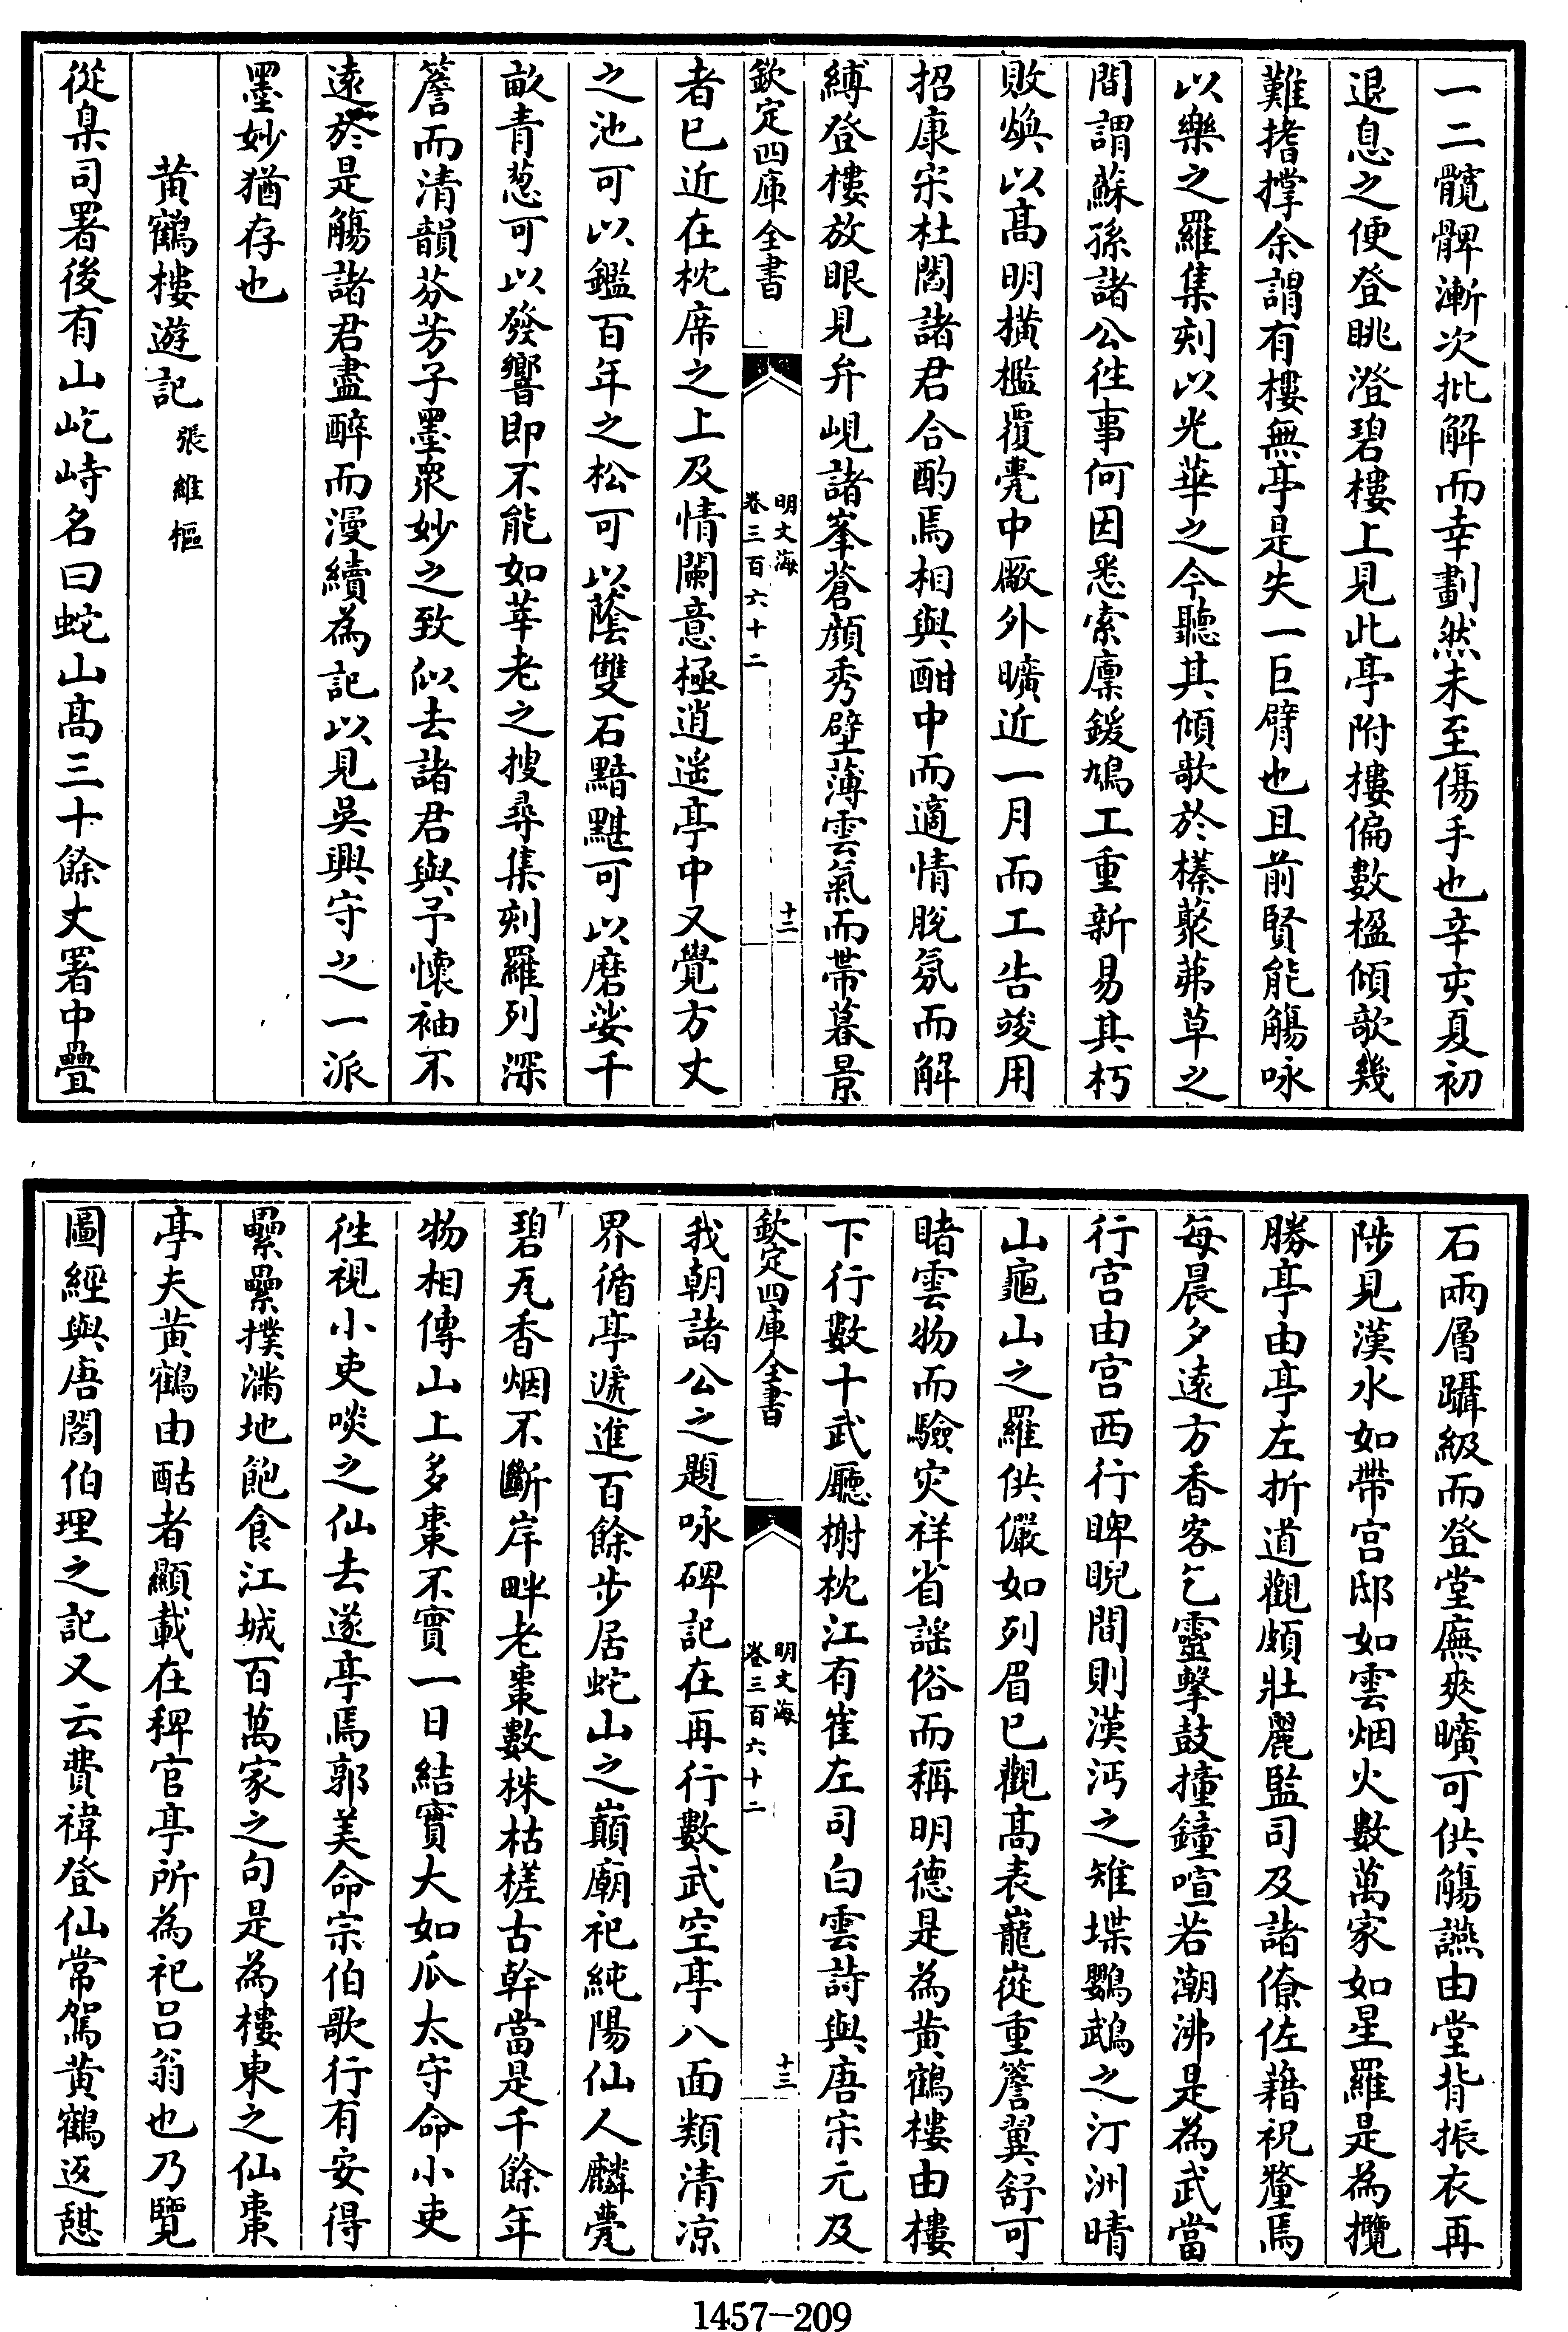 一二髖髀漸次批解而幸劃然未至傷手也辛亥夏初
退息之便登眺澄碧樓上見此亭附樓偏數楹傾欹幾
難搘撑余謂有樓無亭是失一巨臂也且前賢能觴咏
以樂之羅集刻以光華之今聽其傾欹於榛蒙茀草之
間謂蘇孫諸公徃事何因悉索廪鍰鳩工重新易其朽
敗煥以髙明横檻覆甍中厰外曠近一月而工告竣用
招康宋杜閻諸君合酌焉相與酣中而適情脫氛而解
縛登樓放眼見弁峴諸峯蒼顔秀壁薄雲氣而帶暮景
欽定四庫全書
明文海
卷三百六十二
十二
者已近在枕席之上及情闌意極逍遥亭中又覺方丈
之池可以鑑百年之松可以䕃雙石黯黮可以磨娑千
畝青葱可以發響即不能如莘老之搜尋集刻羅列深
簷而清韻芬芳子墨衆妙之致似去諸君與予懷袖不
逺於是觴諸君盡醉而漫續為記以見吳興守之一派
墨妙猶存也
黄鶴樓遊記張維樞
從臬司署後有山屹峙名曰蛇山髙三十餘丈署中疊
石兩層躡級而登堂廡夾曠可供觴讌由堂背振衣再
陟見漢水如帶宫邸如雲烟火數萬家如星羅是為攬
勝亭由亭左折道觀頗壯麗監司及諸僚佐藉祝釐焉
每晨夕逺方香客乞靈擊鼓撞鐘喧若潮沸是為武當
行宫由宫西行睥睨間則漢沔之雉堞鸚鵡之汀洲晴
山龜山之羅供儼如列眉已觀髙表巃嵸重簷翼舒可
睹雲物而驗灾祥省謡俗而稱明德是為黄鶴樓由樓
下行數十武廳榭枕江有崔左司白雲詩與唐宋元及
欽定四庫全書
明文海
卷三百六十二
十三
我朝諸公之題咏碑記在再行數武空亭八面類清凉
界循亭遞進百餘步居蛇山之巔廟祀純陽仙人麟甍
碧瓦香烟不斷岸畔老棗數株枯槎古幹當是千餘年
物相傳山上多棗不實一日結實大如瓜太守命小吏
徃視小吏啖之仙去遂亭焉郭美命宗伯歌行有安得
纍纍撲滿地飽食江城百萬家之句是為樓東之仙棗
亭夫黄鶴由酤者顯載在稗官亭所為祀吕翁也乃覽
圖經與唐閻伯理之記又云費禕登仙常駕黄鶴返憇
1457-209